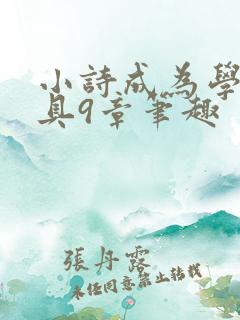 小詩成為學
具9章筆趣
張丹露
未經同意禁止轉載